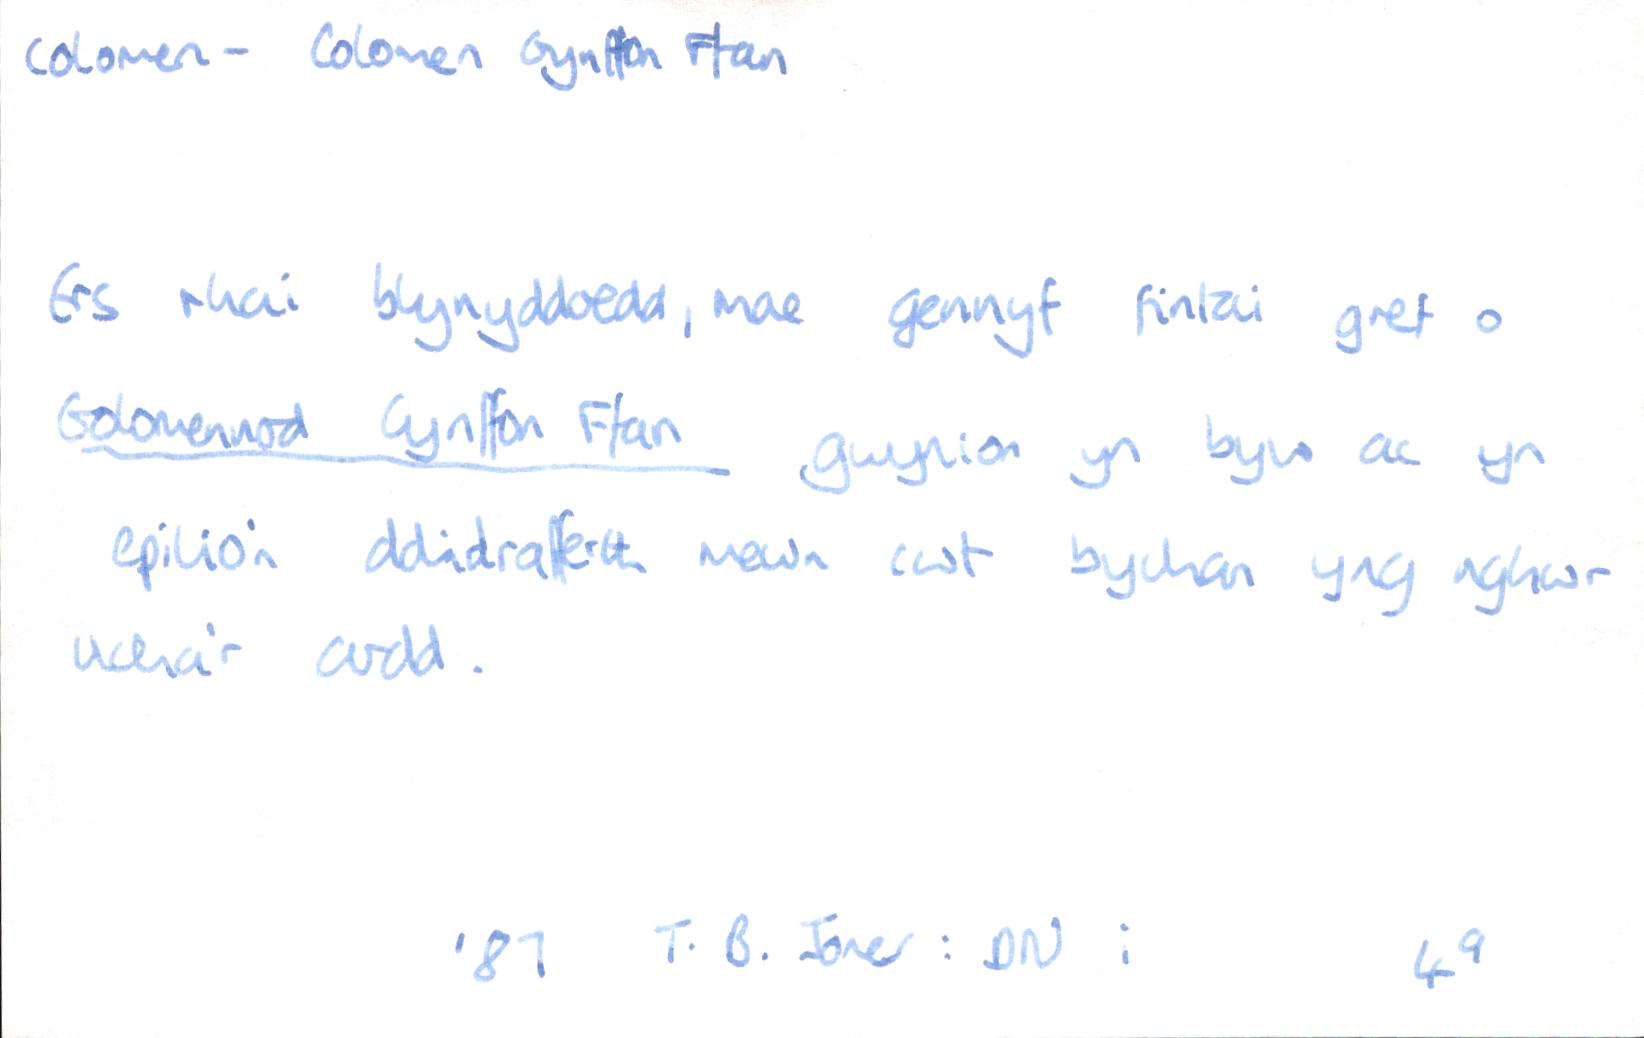 Colomen - Colomen Gynffon Ffan
Ers rhai blynyddoedd, mae gennyf fintai gref o
Golomennod Cynffon Ffan gwynion yn byw ac yn
epilio'n ddidrafferth mewn cwt bychan yng nghwr
ucha'r ardd.
'87 T. B. Jones : DN i 49